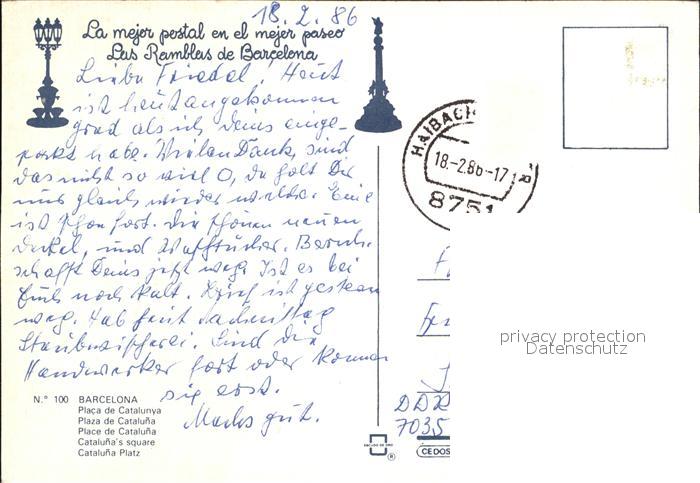 18.2.86
La mejor postal en el mejor paseo
Las Ramblas de Barcelona
Liebe Friedel! Heut
ist heut angekommen
grad als ich Deins einge-
packt habe. Vielen Dank, sind
das nicht so viel
uns gleich wieder welche. Eine
ist schon fort. Die schönen neuen
Deckel, und Waschtücher.
schafft Deins jetzt weg. Ist es bei
Euch noch kalt. Brief ist gestern
weg. Hab heut Nachmittag
Sind die
Handwerker fort oder kommen
sie erst.
Machs gut.
HAIBACH
18.-2.86-17
8751
privacy protection
Datenschutz
DDR
7035
N.° 100 BARCELONA
Plaça de Catalunya
Plaza de Cataluña
Place de Cataluña
Cataluña's square
Cataluña Platz
ESCUDO DE ORO
®
CEDOS